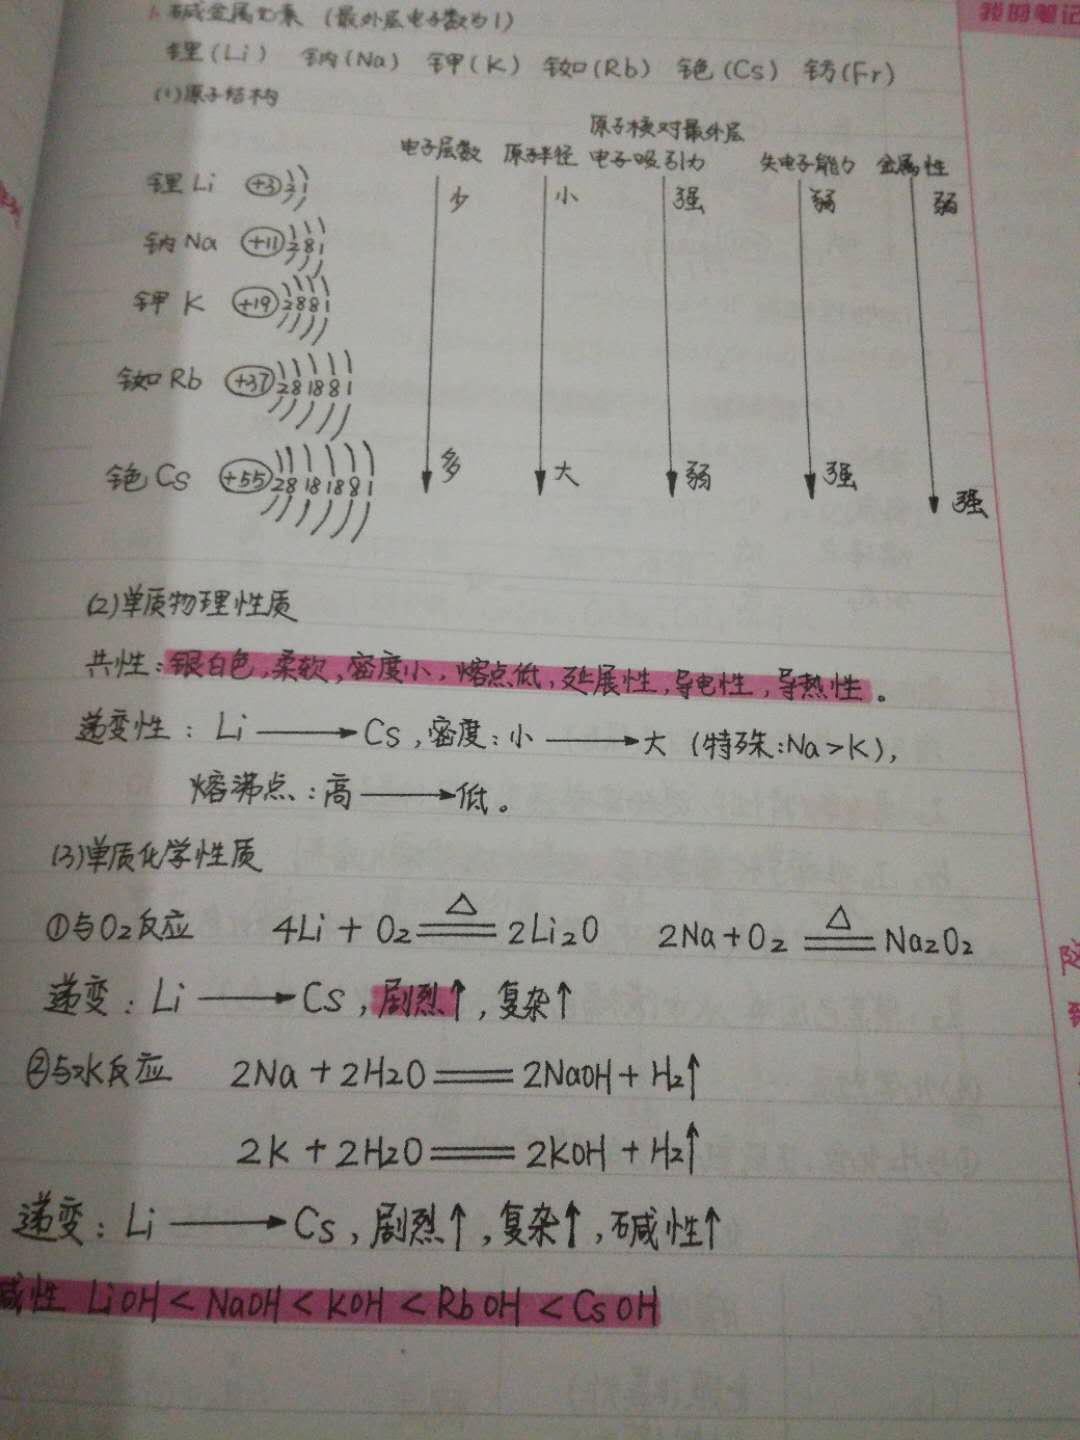 1.碱金属元素（最外层电子数为1）
我的笔记
锂(Li) 钠(Na) 钾(K) 铷(Rb) 铯(Cs) 钫(Fr)
(1)原子结构
电子层数 原子半径 原子核对最外层电子吸引力 失电子能力 金属性
锂Li +3 2 1 少 小 强 弱 弱
钠Na +11 2 8 1
钾K +19 2 8 8 1
铷Rb +37 2 8 18 8 1
铯Cs +55 2 8 18 18 8 1 多 大 弱 强 强
(2)单质物理性质
共性:银白色,柔软,密度小,熔点低,延展性,导电性,导热性。
递变性：Li→Cs,密度:小→大（特殊:Na>K),
熔沸点:高→低。
(3)单质化学性质
①与O₂反应 4Li+O₂=△=2Li₂O 2Na+O₂=△=Na₂O₂
递变:Li→Cs,剧烈↑,复杂↑
②与水反应 2Na+2H₂O=2NaOH+H₂↑
2K+2H₂O=2KOH+H₂↑
递变:Li→Cs,剧烈↑,复杂↑,碱性↑
碱性 LiOH<NaOH<KOH<RbOH<CsOH